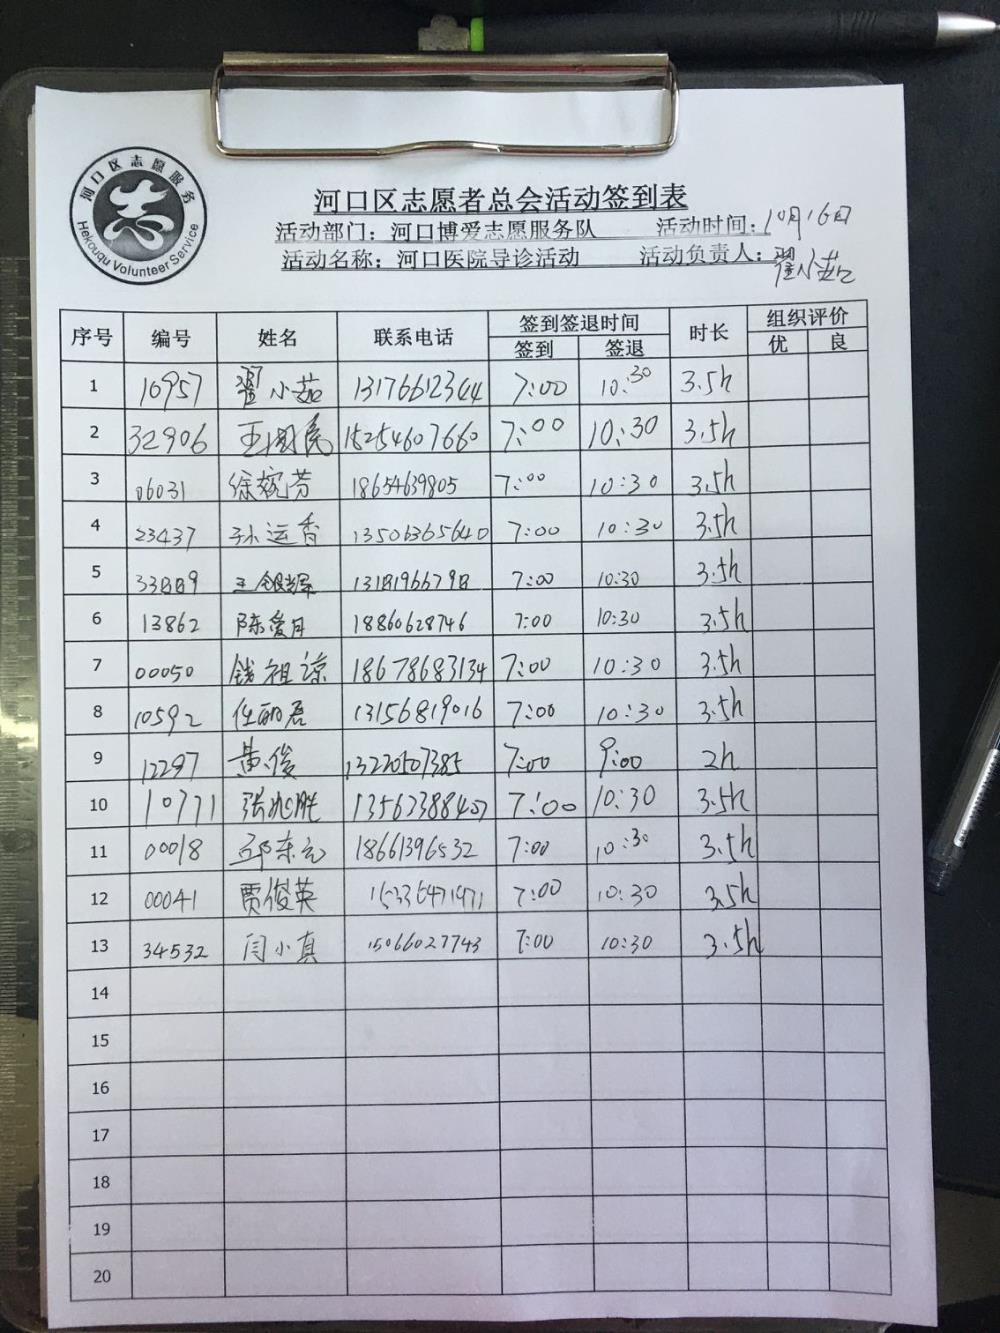 河口区志愿服务
Hekouqu Volunteer Service
河口区志愿者总会活动签到表
活动部门：河口博爱志愿服务队 活动时间：10月16日
活动名称：河口医院导诊活动 活动负责人：翟小茹
序号 编号 姓名 联系电话 签到签退时间 时长 组织评价
签到 签退 优 良
1 10957 翟小茹 13176612344 7:00 10:30 3.5h
2 32906 王国亮 15254607660 7:00 10:30 3.5h
3 06031 徐婉芳 18654639805 7:00 10:30 3.5h
4 23437 孙运香 13506365640 7:00 10:30 3.5h
5 33889 王银辉 13181966798 7:00 10:30 3.5h
6 13862 陈爱月 18860628746 7:00 10:30 3.5h
7 00050 钱祖谅 18678683134 7:00 10:30 3.5h
8 10592 任丽磊 13156819016 7:00 10:30 3.5h
9 12297 黄俊 13220507385 7:00 9:00 2h
10 10771 张兆胜 13562388407 7:00 10:30 3.5h
11 00018 邱东元 18661396532 7:00 10:30 3.5h
12 00041 贾俊英 15336471471 7:00 10:30 3.5h
13 34532 闫小真 15066027743 7:00 10:30 3.5h
14
15
16
17
18
19
20